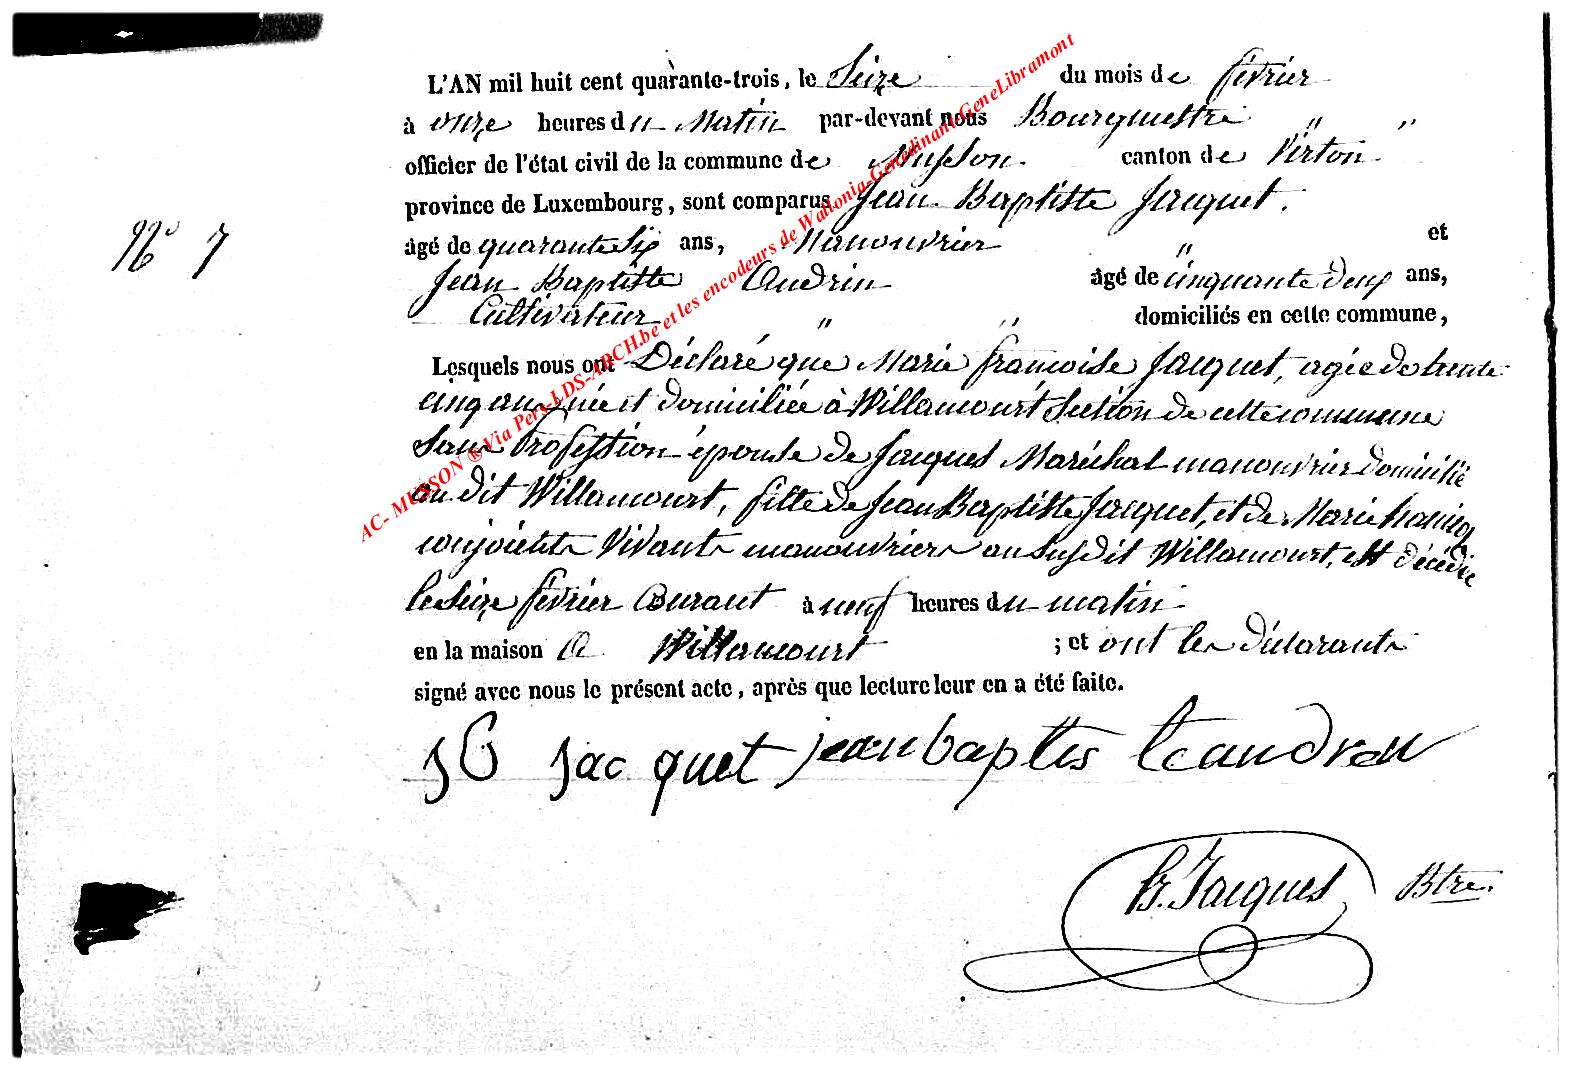 L'AN mil huit cent quarante-trois, le Seize du mois de février
à onze heures du Matin par-devant nous Bourgmestre " "
officier de l'état civil de la commune de Musson. canton de Virton.
province de Luxembourg, sont comparus Jean Baptiste Jacquet.
N° 7
âgé de quarante Six ans, Manouvrier " et
Jean Baptiste Andrin âgé de cinquante deux ans,
Cultivateur " " domiciliés en cette commune,
Lesquels nous ont Déclaré que Marie françoise Jacquet, agée de trente
cinq ans, née et domiciliée à Willancourt Section de cette commune
Sans Profession épouse de Jacques Maréchal manouvrier domicilié
au dit Willancourt, fille de Jean Baptiste Jacquet, et de Marie
conjoints Vivants manouvriers au Susdit Willancourt, est décédée
le Seize février Courant à neuf heures du matin
en la maison a Willancourt ; et ont les déclarants
signé avec nous le présent acte, après que lecture leur en a été faite.
Jacquet jean baptis
Jacques Btre.
AC- MUSSON ® Via Pers-LDS-ARCH.be et les encodeurs de Wallonia-Genedinant-GeneLibramont